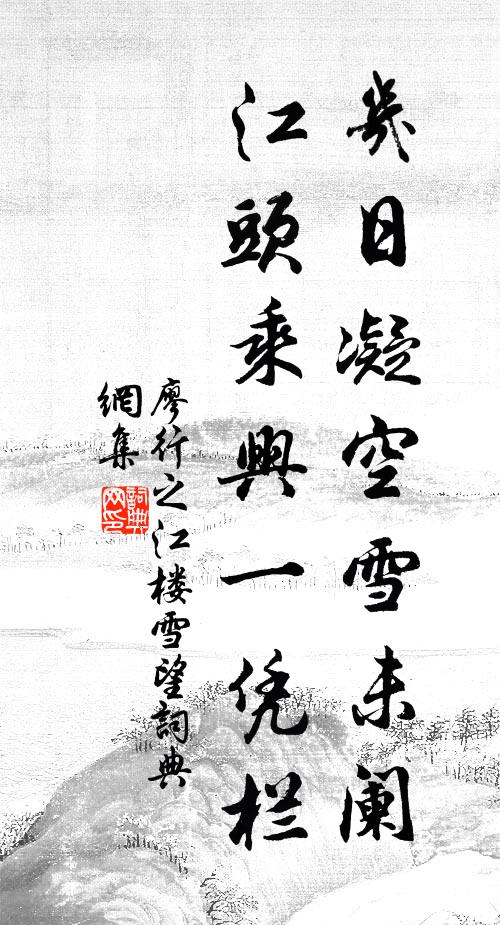 幾日凝空雪未阑
江頭乘興一凭栏
廖行之江楼雪望詞典
網集
詞典网印